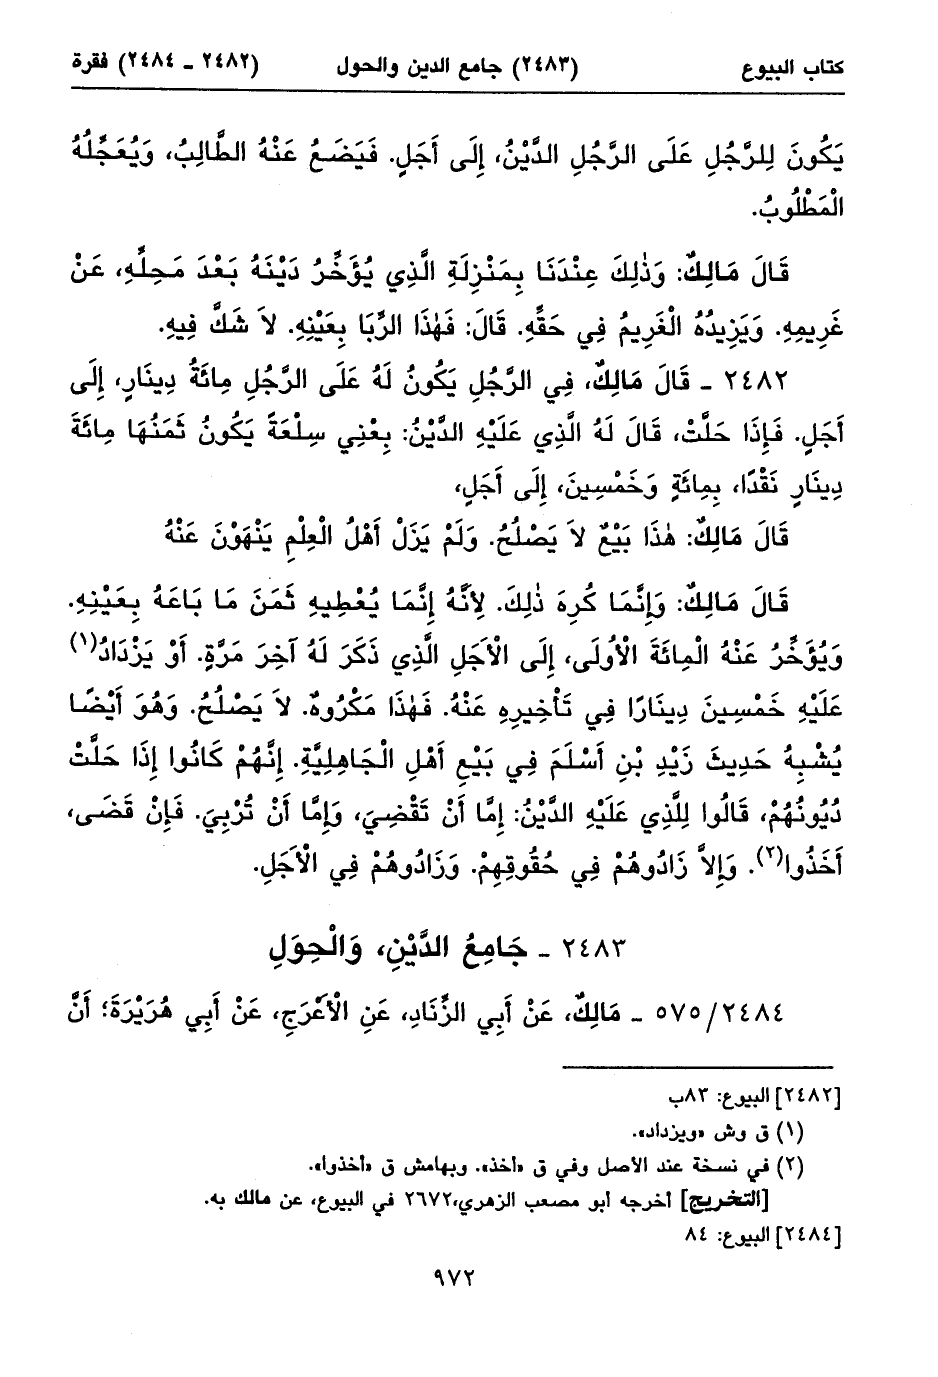 كتاب البيوع (٢٤٨٣) جامع الدين والحول (٢٤٨٢ ـ ٢٤٨٤) فقرة
يَكُونَ لِلرَّجُلِ عَلَى الرَّجُلِ الدَّيْنُ، إِلَى أَجَلٍ. فَيَضَعُ عَنْهُ الطَّالِبُ، وَيُعَجِّلُهُ
الْمَطْلُوبُ.
قَالَ مَالِكٌ: وَذٰلِكَ عِنْدَنَا بِمَنْزِلَةِ الَّذِي يُؤَخِّرُ دَيْنَهُ بَعْدَ مَحِلِّهِ، عَنْ
غَرِيمِهِ. وَيَزِيدُهُ الْغَرِيمُ فِي حَقِّهِ. قَالَ: فَهٰذَا الرِّبَا بِعَيْنِهِ. لاَ شَكَّ فِيهِ.
٢٤٨٢ ـ قَالَ مَالِكٌ، فِي الرَّجُلِ يَكُونُ لَهُ عَلَى الرَّجُلِ مِائَةُ دِينَارٍ، إِلَى
أَجَلٍ. فَإِذَا حَلَّتْ، قَالَ لَهُ الَّذِي عَلَيْهِ الدَّيْنُ: بِعْنِي سِلْعَةً يَكُونُ ثَمَنُهَا مِائَةَ
دِينَارٍ نَقْدًا، بِمِائَةٍ وَخَمْسِينَ، إِلَى أَجَلٍ،
قَالَ مَالِكٌ: هٰذَا بَيْعٌ لاَ يَصْلُحُ. وَلَمْ يَزَلْ أَهْلُ الْعِلْمِ يَنْهَوْنَ عَنْهُ
قَالَ مَالِكٌ: وَإِنَّمَا كُرِهَ ذٰلِكَ. لِأَنَّهُ إِنَّمَا يُعْطِيهِ ثَمَنَ مَا بَاعَهُ بِعَيْنِهِ.
وَيُؤَخِّرُ عَنْهُ الْمِائَةَ الْأُولَى، إِلَى الْأَجَلِ الَّذِي ذَكَرَ لَهُ آخِرَ مَرَّةٍ. أَوْ يَزْدَادُ(١)
عَلَيْهِ خَمْسِينَ دِينَارًا فِي تَأْخِيرِهِ عَنْهُ. فَهٰذَا مَكْرُوهٌ. لاَ يَصْلُحُ. وَهُوَ أَيْضًا
يُشْبِهُ حَدِيثَ زَيْدِ بْنِ أَسْلَمَ فِي بَيْعِ أَهْلِ الْجَاهِلِيَّةِ. إِنَّهُمْ كَانُوا إِذَا حَلَّتْ
دُيُونُهُمْ، قَالُوا لِلَّذِي عَلَيْهِ الدَّيْنُ: إِمَّا أَنْ تَقْضِيَ، وَإِمَّا أَنْ تُرْبِيَ. فَإِنْ قَضَى،
أَخَذُوا(٢). وَإِلاَّ زَادُوهُمْ فِي حُقُوقِهِمْ. وَزَادُوهُمْ فِي الْأَجَلِ.
٢٤٨٣ ـ جَامِعُ الدَّيْنِ، وَالْحِوَلِ
٥٧٥/٢٤٨٤ ـ مَالِكٌ، عَنْ أَبِي الزِّنَادِ، عَنِ الْأَعْرَجِ، عَنْ أَبِي هُرَيْرَةَ؛ أَنَّ
[٢٤٨٢] البيوع: ٨٣ب
(١) ق وش «ويزداد».
(٢) في نسخة عند الأصل وفي ق «أخذ». وبهامش ق «أخذوا».
[التخريج] أخرجه أبو مصعب الزهري،٢٦٧٢ في البيوع، عن مالك به.
[٢٤٨٤] البيوع: ٨٤
٩٧٢